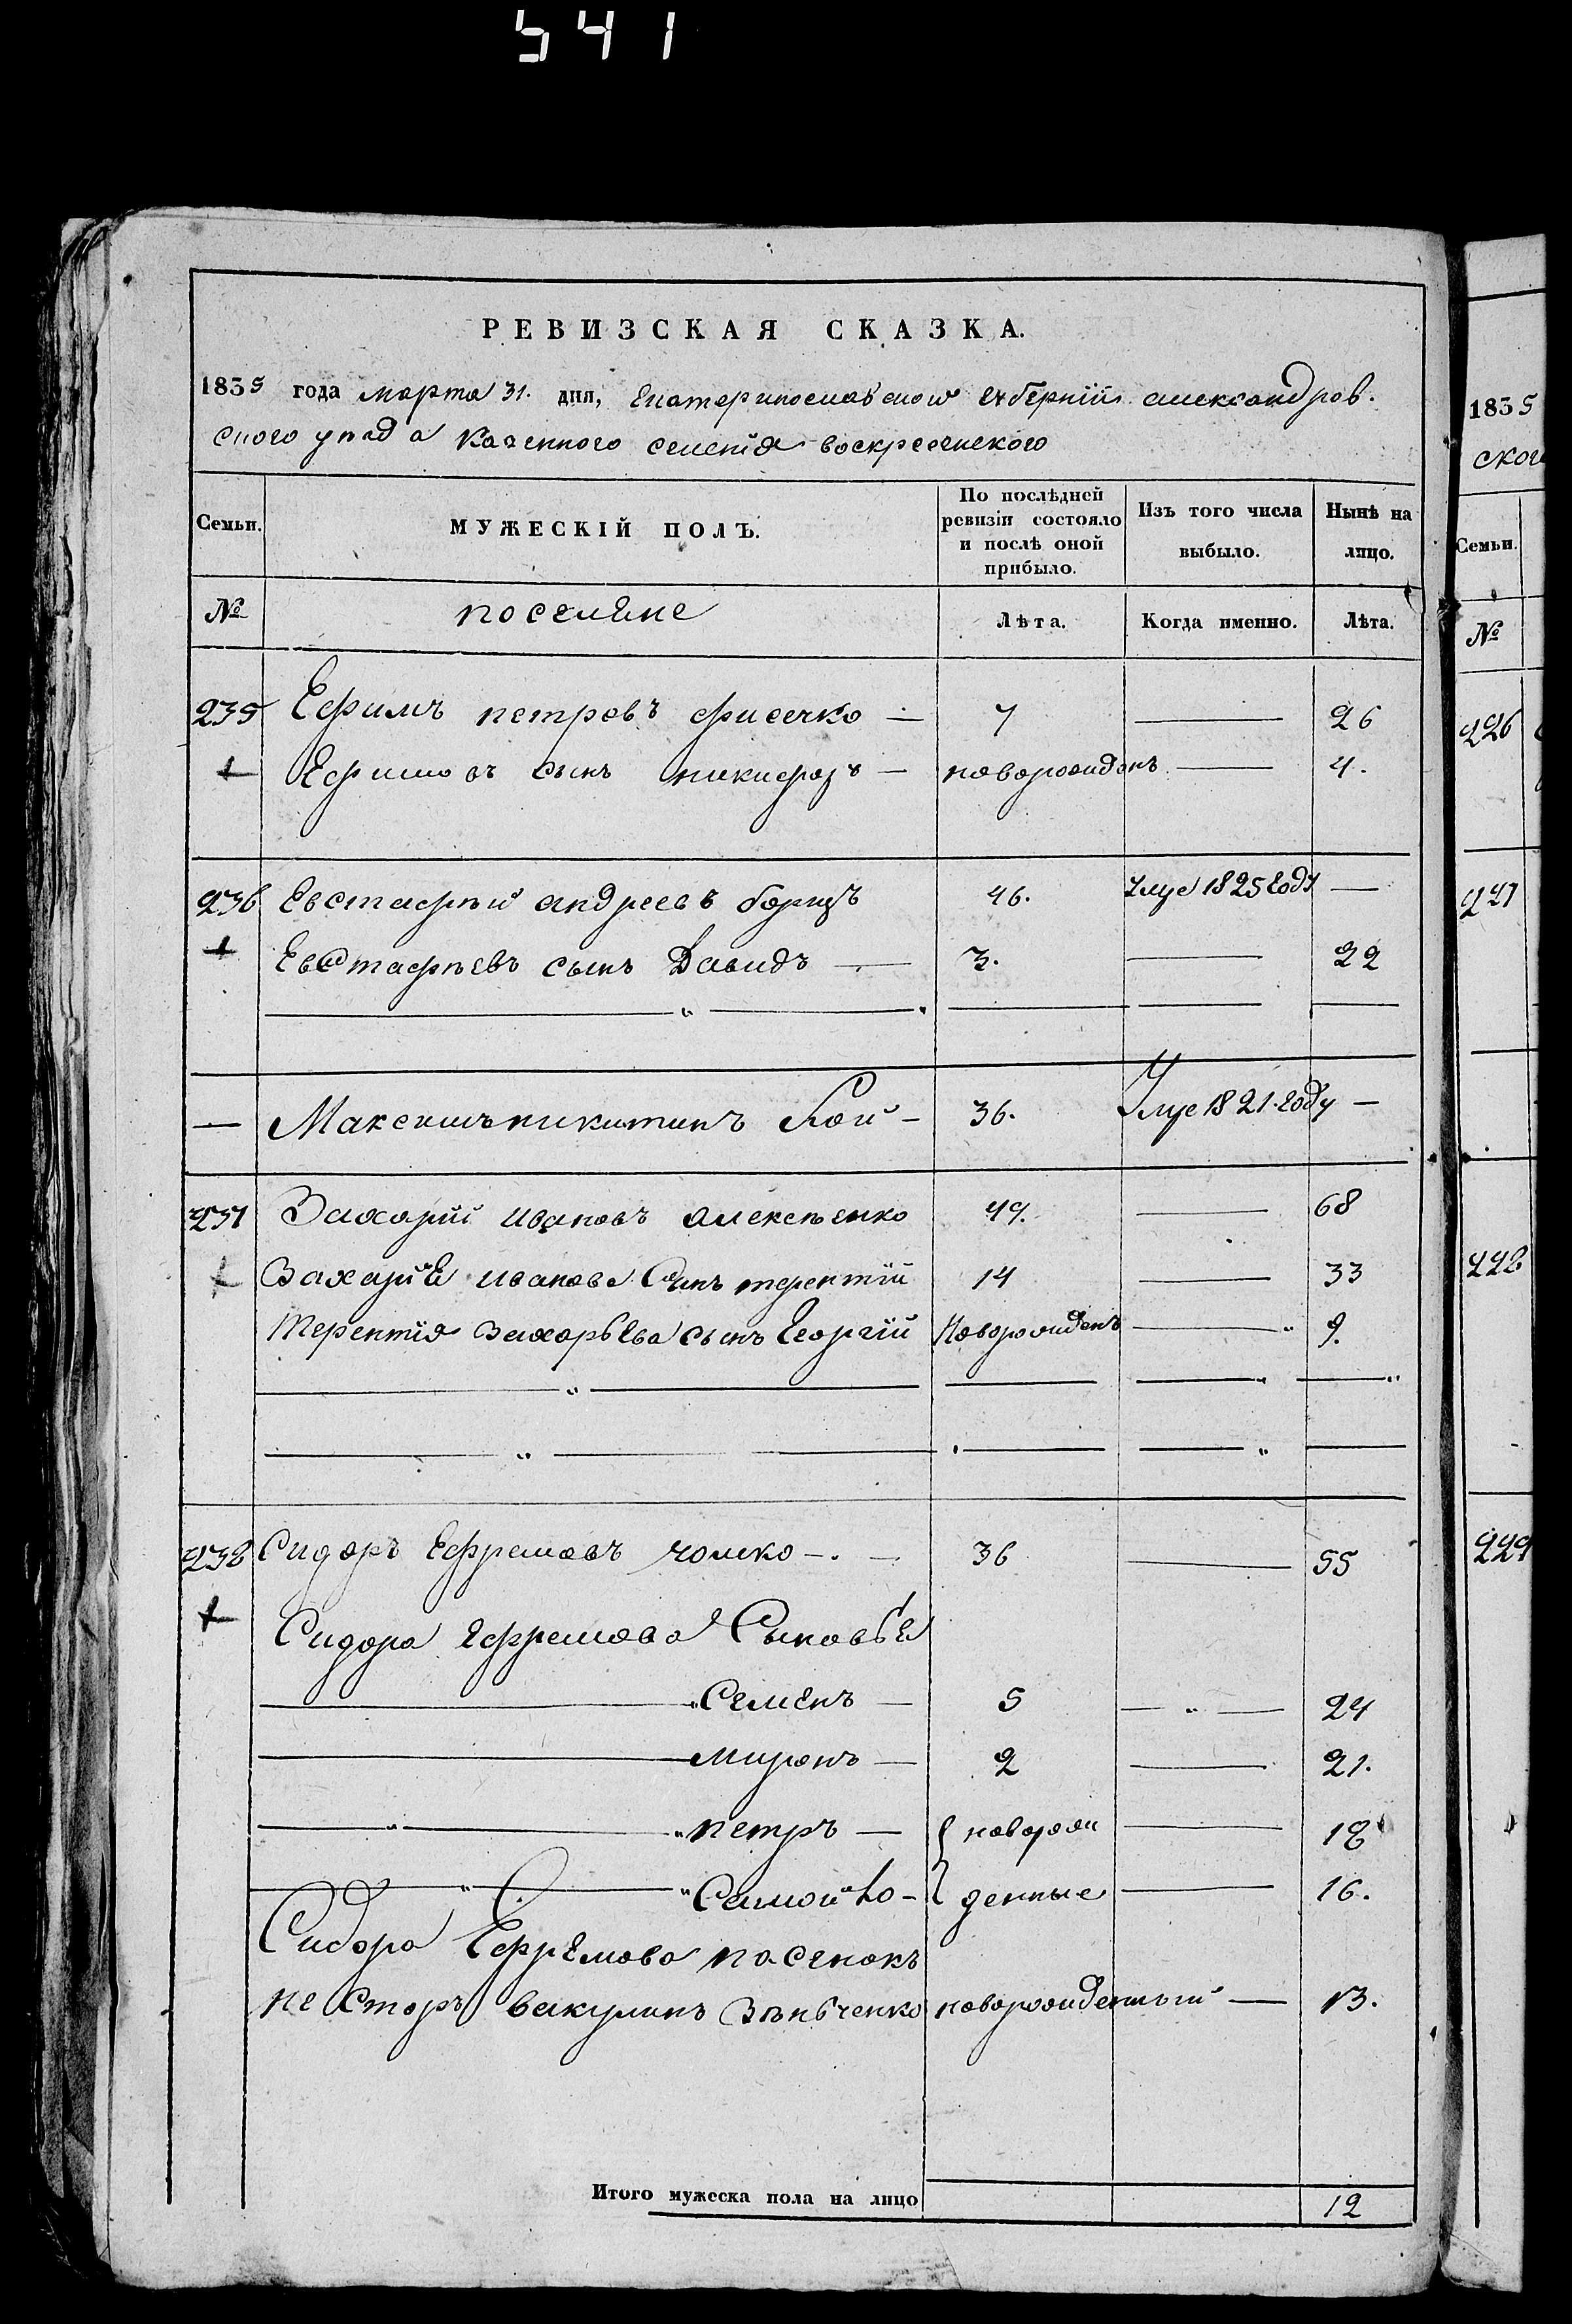 541
РЕВИЗСКАЯ СКАЗКА.
1835 года марта 31. дня, Екатеринославской губерніи александров.
ского уезда казенного селенія воскресенского
Семьи. МУЖЕСКІЙ ПОЛЪ. По послѣдней ревизіи состояло и послѣ оной прибыло. Изъ того числа выбыло. Нынѣ на лицо.
№ поселяне Лѣта. Когда именно. Лѣта.
235 Ефимъ петровъ фисечко — 7 — 26
+ Ефимовъ сынъ никифоръ — новорожденъ — 4.
236 Евстафѣй андреевъ борщъ 46. Умре 1825 году —
+ Евстафѣевъ сынъ Давидъ — 3. — 22
— Максимъ никитинъ Гой — 36. Умре 1821. году —
237 Захарій ивановъ алексѣенко 49. — 68
+ Захарія иванова Сынъ терентій 14 — 33
терентія захарьева сынъ Георгій новорожденъ — 9.
238 Сидоръ Ефремовъ чомко — . — 36 — 55
+ Сидора Ефремова Сыновья
— „ Семенъ — 5 — „ — 24
— миронъ — 2 — 21.
— „ — „ петръ — { новорож — 18
— „ — „ Самойло — } денные — 16.
Сидора Ефремова пасенокъ
несторъ вакулинъ новорожденный — 13.
Итого мужеска пола на лицо 12
1835
ског
Семьи.
№
226
227
228
229